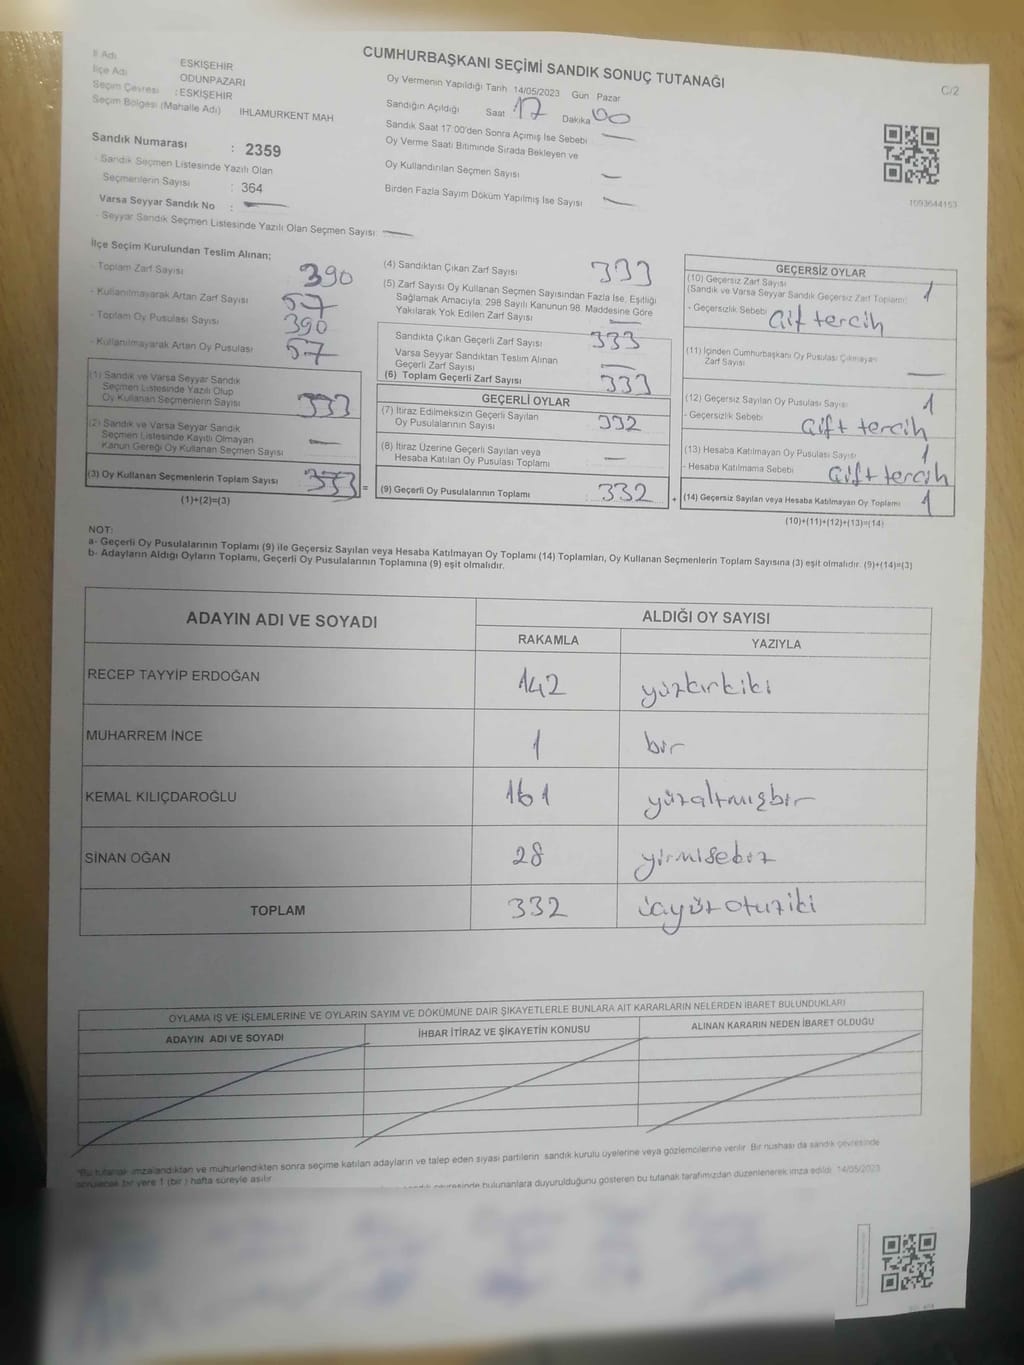 CUMHURBAŞKANI SEÇİMİ SANDIK SONUÇ TUTANAĞI
C/2
İl Adı ESKİŞEHİR
İlçe Adı ODUNPAZARI
Seçim Çevresi : ESKİŞEHİR
Seçim Bölgesi (Mahalle Adı) IHLAMURKENT MAH
Sandık Numarası : 2359
- Sandık Seçmen Listesinde Yazılı Olan
Seçmenlerin Sayısı : 364
Varsa Seyyar Sandık No : —
- Seyyar Sandık Seçmen Listesinde Yazılı Olan Seçmen Sayısı: —
Oy Vermenin Yapıldığı Tarih 14/05/2023 Gün Pazar
Sandığın Açıldığı Saat 17 Dakika 00
Sandık Saat 17:00'den Sonra Açımış İse Sebebi —
Oy Verme Saati Bitiminde Sırada Bekleyen ve
Oy Kullandırılan Seçmen Sayısı —
Birden Fazla Sayım Döküm Yapılmış İse Sayısı —
1093644153
İlçe Seçim Kurulundan Teslim Alınan;
- Toplam Zarf Sayısı 390
- Kullanılmayarak Artan Zarf Sayısı 57
- Toplam Oy Pusulası Sayısı 390
- Kullanılmayarak Artan Oy Pusulası 57
(1) Sandık ve Varsa Seyyar Sandık
Seçmen Listesinde Yazılı Olup
Oy Kullanan Seçmenlerin Sayısı 333
(2) Sandık ve Varsa Seyyar Sandık
Seçmen Listesinde Kayıtlı Olmayan
Kanun Gereği Oy Kullanan Seçmen Sayısı —
(3) Oy Kullanan Seçmenlerin Toplam Sayısı 333 =
(1)+(2)=(3)
(4) Sandıktan Çıkan Zarf Sayısı 333
(5) Zarf Sayısı Oy Kullanan Seçmen Sayısından Fazla İse, Eşitliği
Sağlamak Amacıyla, 298 Sayılı Kanunun 98. Maddesine Göre
Yakılarak Yok Edilen Zarf Sayısı —
Sandıkta Çıkan Geçerli Zarf Sayısı 333
Varsa Seyyar Sandıktan Teslim Alınan
Geçerli Zarf Sayısı —
(6) Toplam Geçerli Zarf Sayısı 333
GEÇERLİ OYLAR
(7) İtiraz Edilmeksizin Geçerli Sayılan
Oy Pusulalarının Sayısı 332
(8) İtiraz Üzerine Geçerli Sayılan veya
Hesaba Katılan Oy Pusulası Toplamı —
(9) Geçerli Oy Pusulalarının Toplamı : 332 +
GEÇERSİZ OYLAR
(10) Geçersiz Zarf Sayısı 1
(Sandık ve Varsa Seyyar Sandık Geçersiz Zarf Toplamı)
- Geçersizlik Sebebi Çift tercih
(11) İçinden Cumhurbaşkanı Oy Pusulası Çıkmayan
Zarf Sayısı —
(12) Geçersiz Sayılan Oy Pusulası Sayısı 1
- Geçersizlik Sebebi Çift tercih
(13) Hesaba Katılmayan Oy Pusulası Sayısı 1
- Hesaba Katılmama Sebebi Çift tercih
(14) Geçersiz Sayılan veya Hesaba Katılmayan Oy Toplamı 1
(10)+(11)+(12)+(13)=(14)
NOT:
a- Geçerli Oy Pusulalarının Toplamı (9) ile Geçersiz Sayılan veya Hesaba Katılmayan Oy Toplamı (14) Toplamları, Oy Kullanan Seçmenlerin Toplam Sayısına (3) eşit olmalıdır. (9)+(14)=(3)
b- Adayların Aldığı Oyların Toplamı, Geçerli Oy Pusulalarının Toplamına (9) eşit olmalıdır.
ADAYIN ADI VE SOYADI ALDIĞI OY SAYISI
RAKAMLA YAZIYLA
RECEP TAYYİP ERDOĞAN 142 yüzkırkiki
MUHARREM İNCE 1 bir
KEMAL KILIÇDAROĞLU 161 yüzaltmışbir
SİNAN OĞAN 28 yirmisekiz
TOPLAM 332 üçyüzotuziki
OYLAMA İŞ VE İŞLEMLERİNE VE OYLARIN SAYIM VE DÖKÜMÜNE DAİR ŞİKAYETLERLE BUNLARA AİT KARARLARIN NELERDEN İBARET BULUNDUKLARI
ADAYIN ADI VE SOYADI İHBAR İTİRAZ VE ŞİKAYETİN KONUSU ALINAN KARARIN NEDEN İBARET OLDUĞU
"Bu tutanak imzalandıktan ve mühürlendikten sonra seçime katılan adayların ve talep eden siyasi partilerin sandık kurulu üyelerine veya gözlemcilerine verilir. Bir nüshası da sandık çevresinde
bir yere 1 (bir) hafta süreyle asılır.
bulunanlara duyurulduğunu gösteren bu tutanak tarafımızdan düzenlenerek imza edildi. 14/05/2023